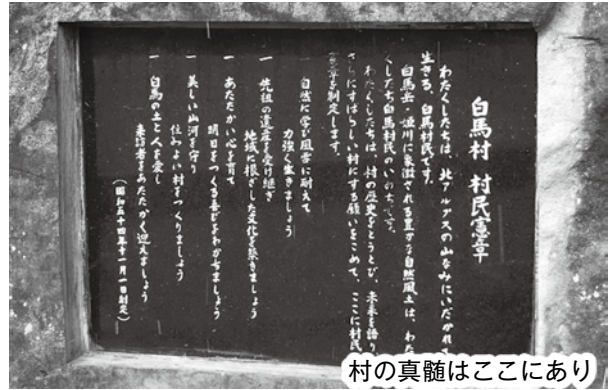 白馬村 村民憲章
わたくしたちは、北アルプスの山なみにいだかれて
生きる、白馬村民です。
白馬岳・姫川に象徴される豊かな自然風土は、わた
くしたち白馬村民のいのちです。
わたくしたちは、村の歴史をとうとび、未来を語り
さらにすばらしい村にする願いをこめて、ここに村民
憲章を制定します。
一 自然に学び風雪に耐えて
力強く生きましょう
一 先祖の遺産を受け継ぎ
地域に根ざした文化を築きましょう
一 あたたかい心を育て
明日をつくる喜びをわかちましょう
一 美しい山河を守り
住みよい村をつくりましょう
一 白馬の土と人を愛し
来訪者をあたたかく迎えましょう
(昭和五十四年十一月一日制定)
村の真髄はここにあり